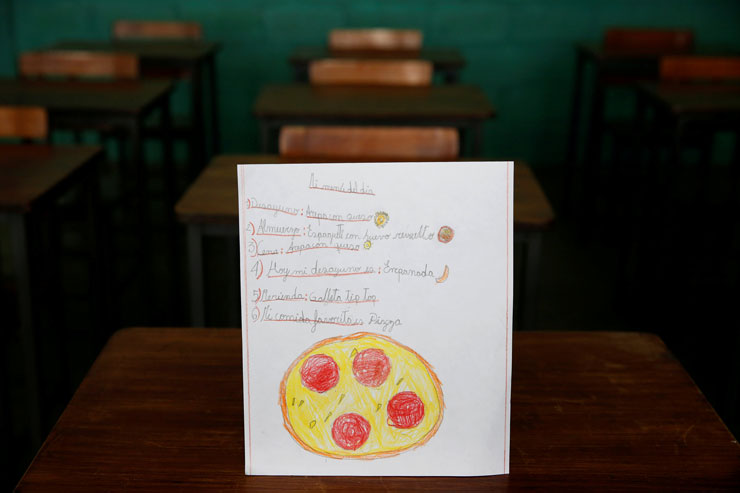 Mi menú del día
1) Desayuno: Arepa con queso
2) Almuerzo: Espagueti con huevo revuelto
3) Cena: Arepa con queso
4) Hoy mi desayuno es: Empanada
5) Merienda: Galleta tip top
6) Mi comida favorita es Piazza